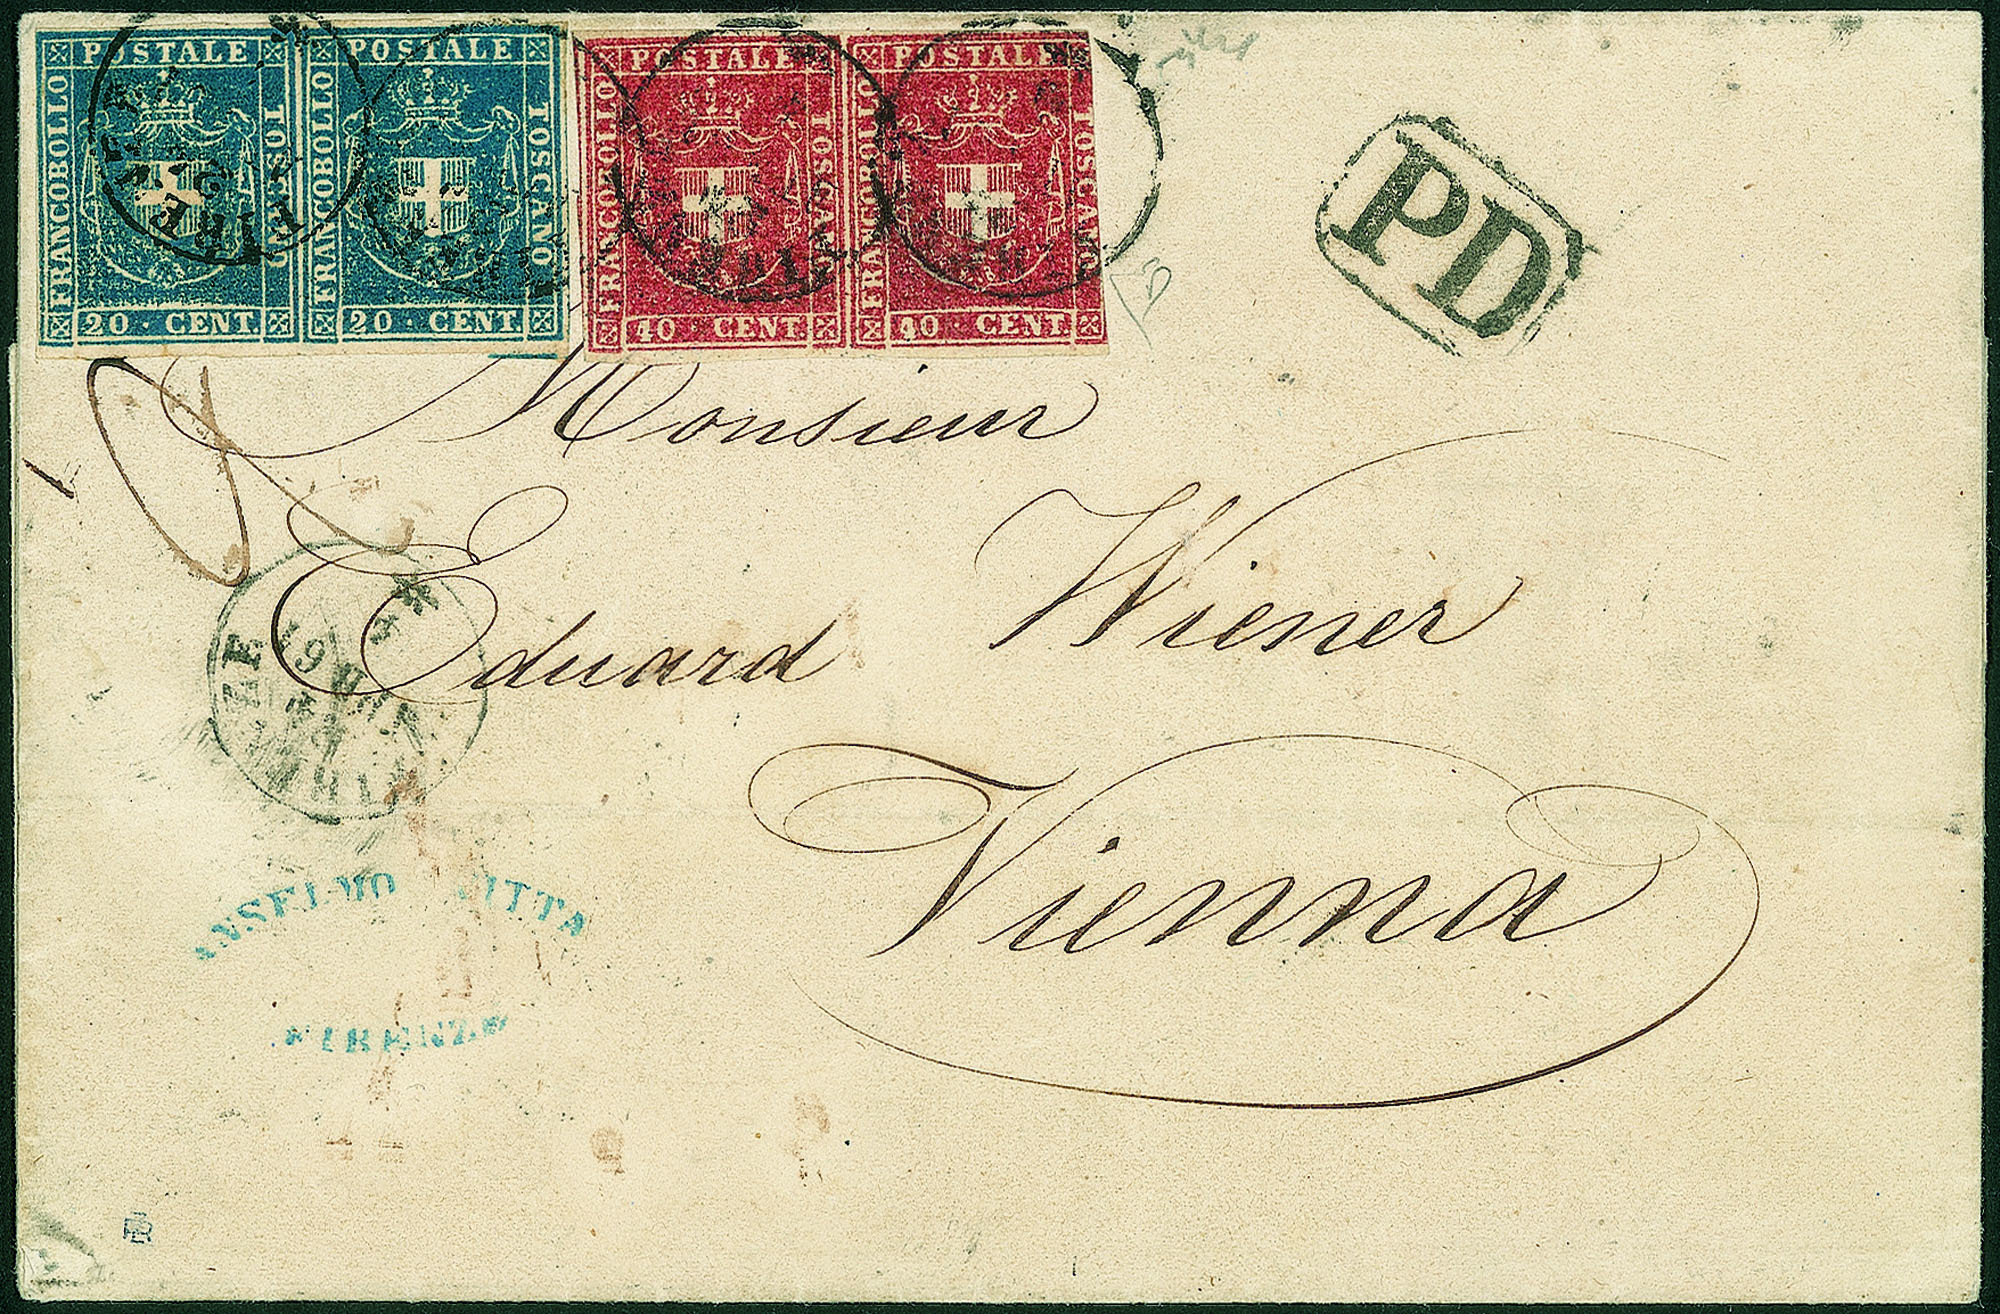 POSTALE
FRANCOBOLLO
TOSCANO
20 CENT.
POSTALE
FRANCOBOLLO
TOSCANO
20 CENT.
POSTALE
FRANCOBOLLO
TOSCANO
40 CENT.
POSTALE
FRANCOBOLLO
TOSCANO
40 CENT.
PD
Monsieur
Eduard Wiener
Vienna
ANSELMO
FIRENZE